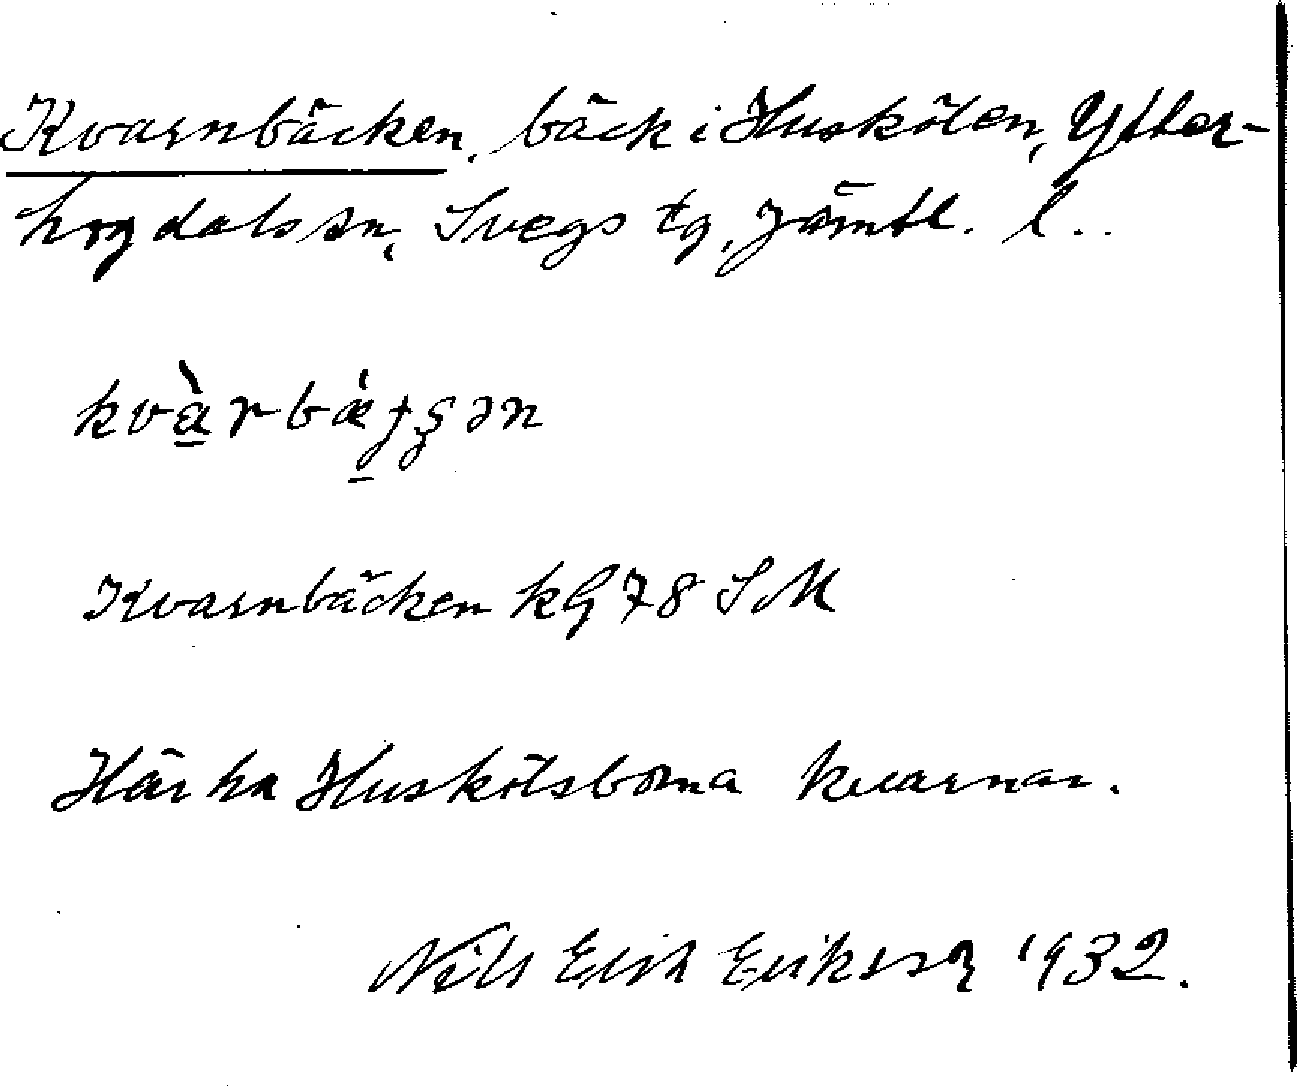 Kvarnbäcken, bäck i Huskölen, Ytter-
hogdals sn, Svegs tg, Jämtl. l..
kvàrbæ̀ɟʂən
Kvarnbäcken kG 78 SM
Här ha Huskölsborna kvarnar.
Nils Erik Eriksson 1932.